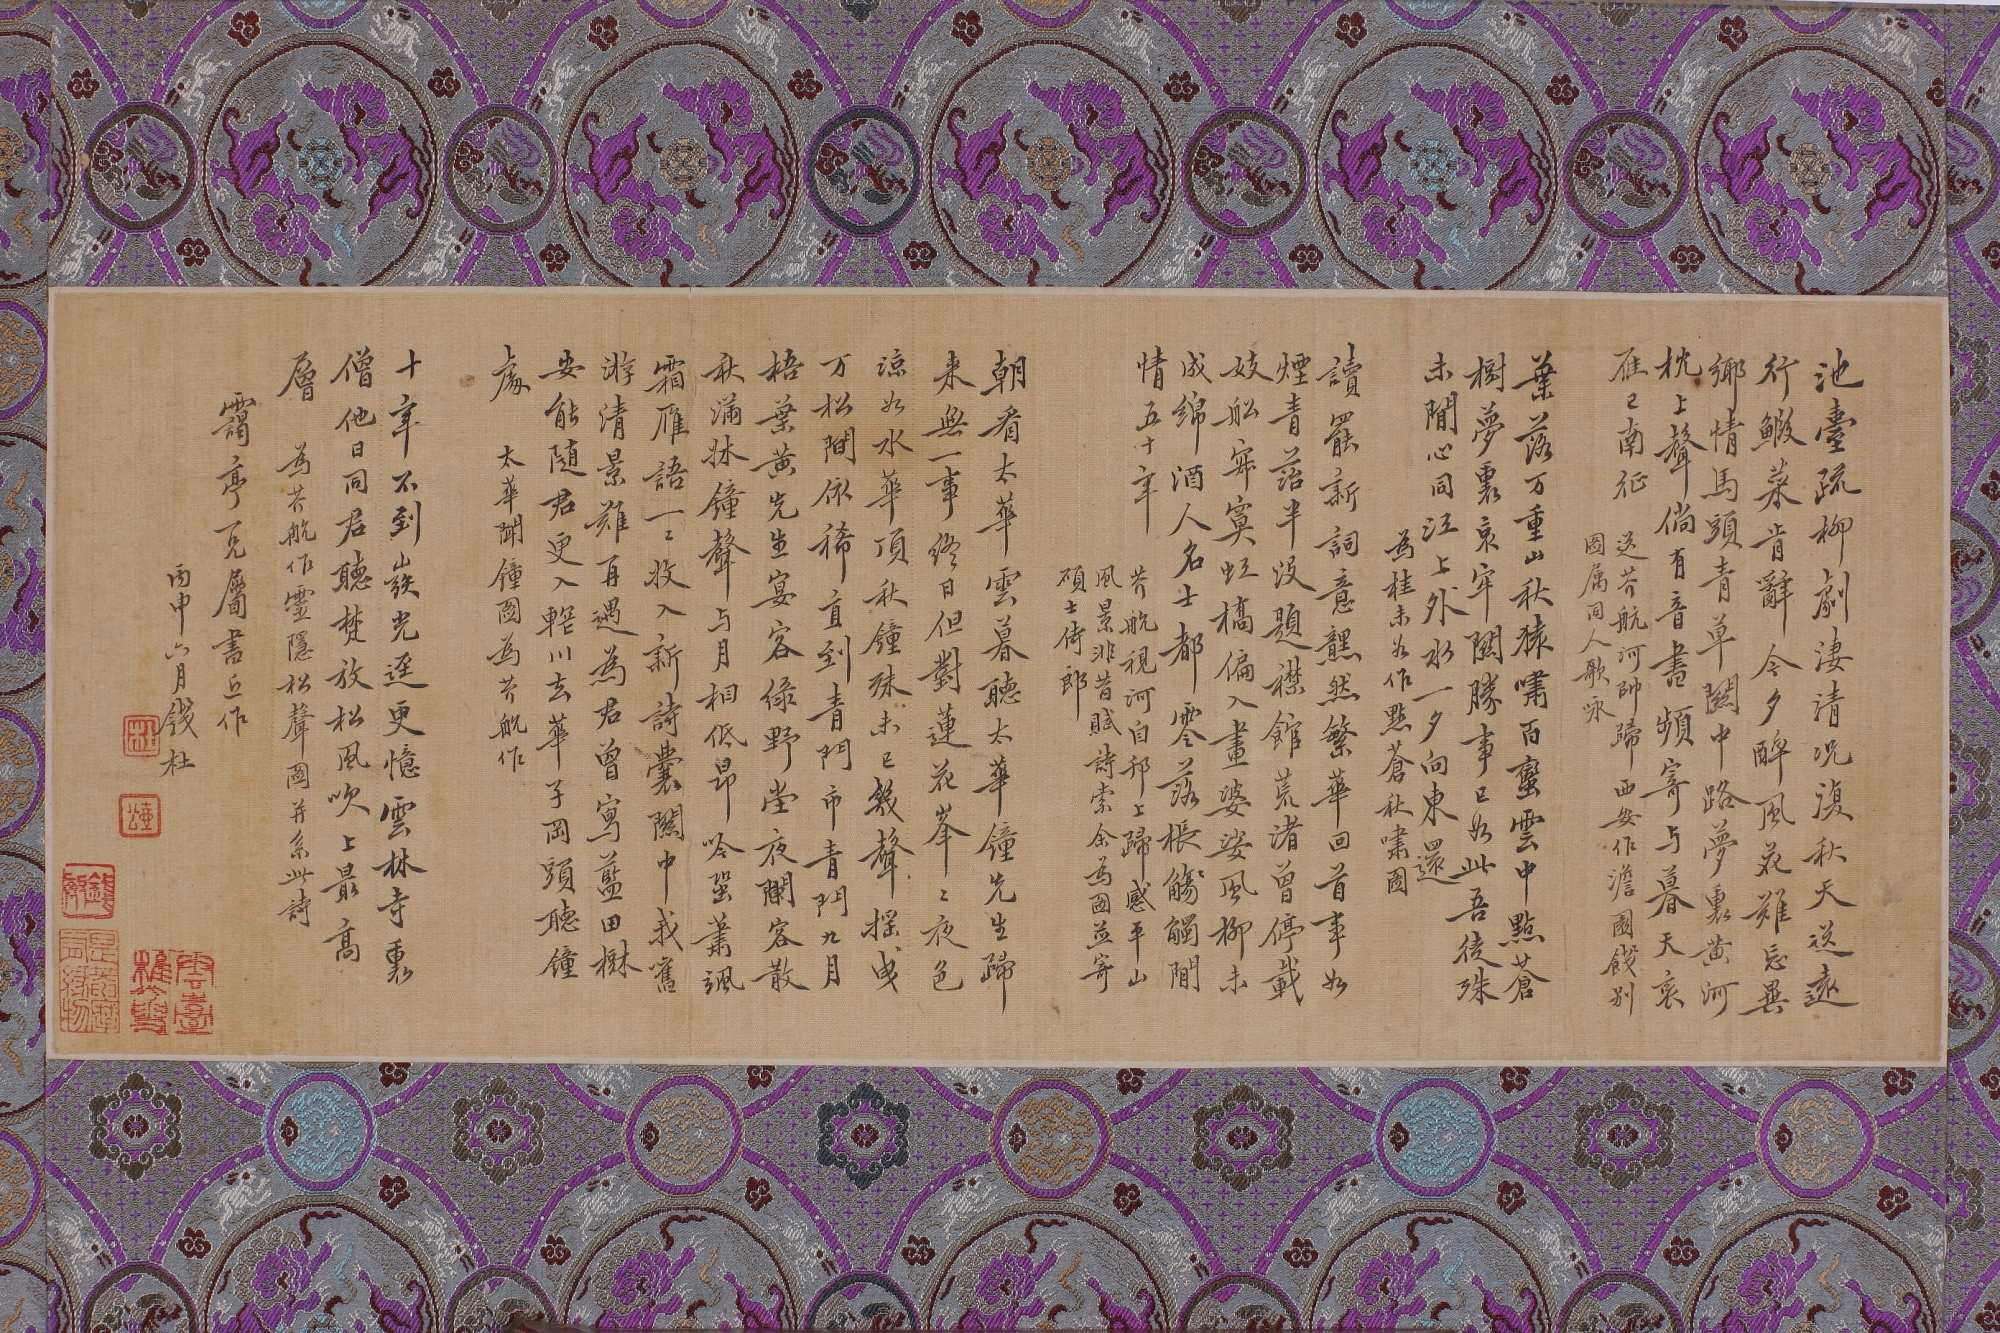 池臺疏柳劇淒清況復秋天送遠
行鰕菜肯辭今夕醉風花難忘異
鄉情馬頭青草關中路夢裏黃河
枕上聲倘有音書頻寄与暮天哀
雁已南征
送芥航河帥歸西安作澹園餞別
圖属同人歌咏
葉落万重山秋猿嘯百蠻雲中點蒼
樹夢裏哀牢關勝事已如此吾徒殊
未閒心同江上外水一夕向東還
為桂未谷作點蒼秋嘯圖
讀罷新詞意黯然繁華回首事如
煙青苔半没題襟館荒渚曾停載
妓船寂寞虹橋偏入畫婆娑風柳未
成綿酒人名士都零落棖觸閒
情五十年
芥航視河自邗上歸感平山
風景非昔賦詩索余為圖並寄
碩士侍郎
朝看太華雲暮聽太華鐘先生歸
来無一事終日但對蓮花峯峯夜色
涼如水華頂秋鐘殊未已幾聲摇曳
万松間依稀直到青門市青門九月
梧葉黃先生宴客綠野堂夜闌客散
秋滿牀鐘聲与月相低昂吟蛩蕭颯
霜雁語一一收入新詩囊關中我舊
游清景難再遇為君曾寫藍田樾
安能随君更入輞川去華子岡頭聽鐘
處
太華聞鐘圖為芥航作
十年不到巖光逕更憶雲林寺裏
僧他日同君聽梵放松風吹上最高
層
為芥航作靈隱松聲圖并系此詩
靄亭二兄屬書近作
丙申六月錢杜